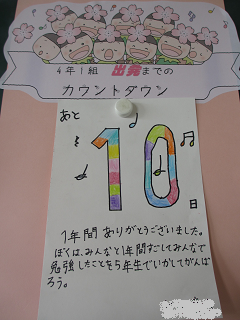 4年1組 出発までの
カウントダウン
あと
10
日
1年間ありがとうございました。
ぼくは、みんなと1年間すごしてみんなで
勉強したことを5年生でいかしてがんば
ろう。